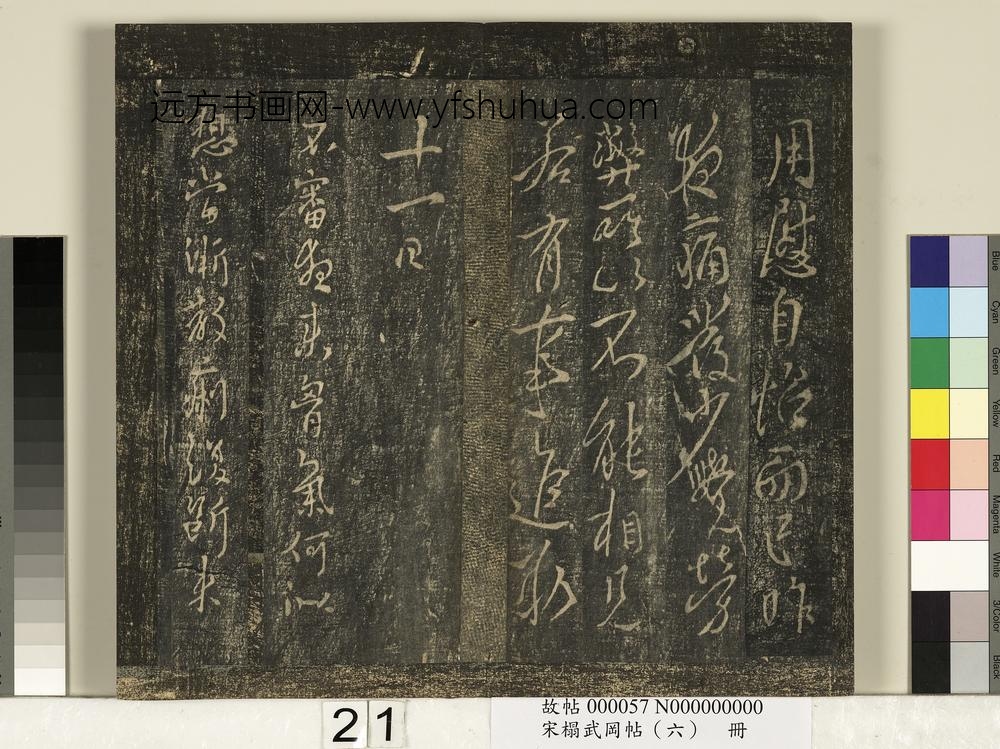 远方书画网-www.yfshuhua.com
用慰自怡而已昨
夜痛發少覺勞
弊
不能相見
若有事進
十一日
不審夜來胃氣何似
想當漸散痢復斷未
Blue
Cyan
Green
Yellow
Red
Magenta
White
3/Color
Black
21
故帖 000057 N000000000
宋榻武岡帖（六） 冊